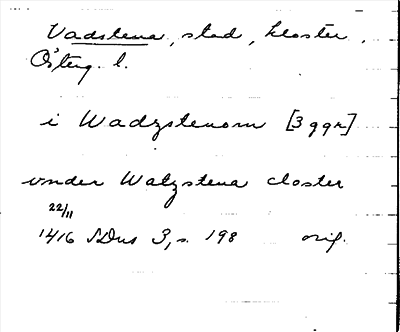 Vadstena, stad, kloster,
Österg. l.
i Wadzstenom [3 ggr]
vnder Watzstena closter
22/11
1416 SDns 3, s. 198 orig.